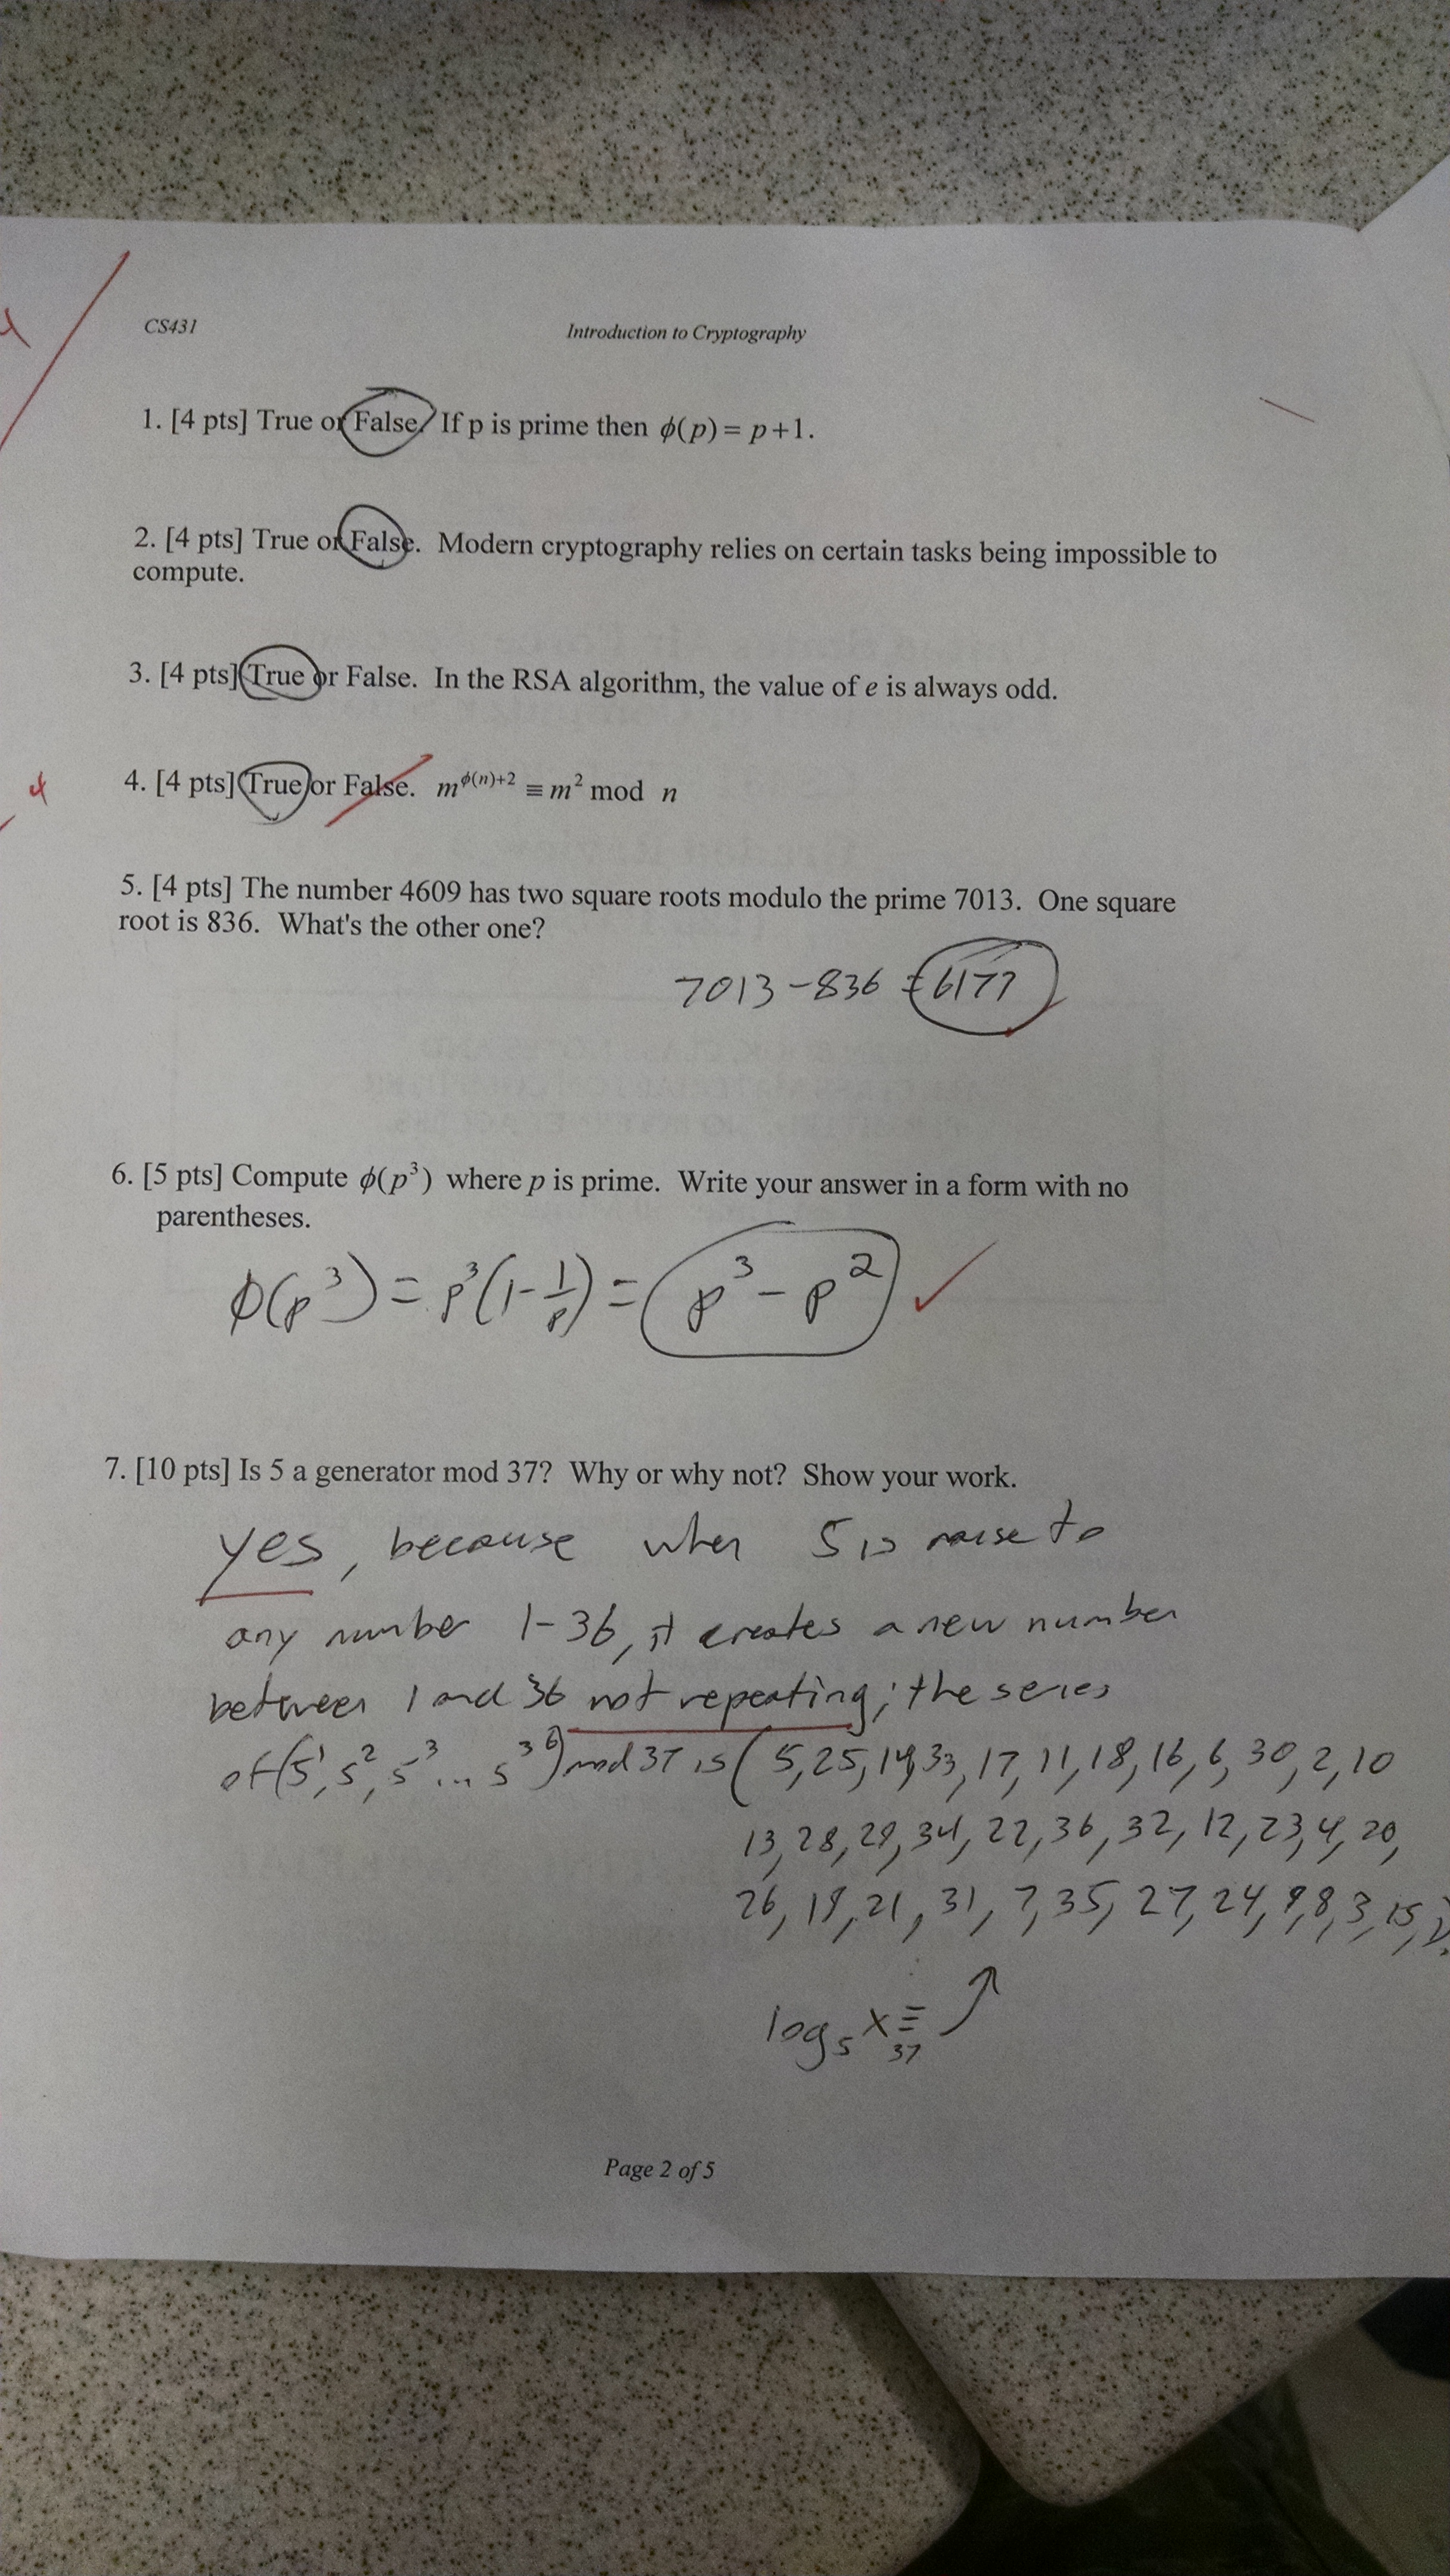 CS431 Introduction to Cryptography
1. [4 pts] True or False. If p is prime then ϕ(p) = p+1.
2. [4 pts] True or False. Modern cryptography relies on certain tasks being impossible to
compute.
3. [4 pts] True or False. In the RSA algorithm, the value of e is always odd.
4
4. [4 pts] True or False. m^ϕ(n)+2 ≡ m² mod n
5. [4 pts] The number 4609 has two square roots modulo the prime 7013. One square
root is 836. What's the other one?
7013 - 836 = 6177
6. [5 pts] Compute ϕ(p³) where p is prime. Write your answer in a form with no
parentheses.
ϕ(p³) = p³(1 - 1/p) = p³ - p² ✓
7. [10 pts] Is 5 a generator mod 37? Why or why not? Show your work.
yes, because when 5 is raise to
any number 1-36, it creates a new number
between 1 and 36 not repeating; the series
of (5¹, 5², 5³ ... 5³⁶) mod 37 is (5, 25, 14, 33, 17, 11, 18, 16, 6, 30, 2, 10
13, 28, 29, 34, 22, 36, 32, 12, 23, 4, 20,
26, 19, 21, 31, 7, 35, 27, 24, 9, 8, 3, 15, 1).
log₅ x ≡₃₇ ↗
Page 2 of 5